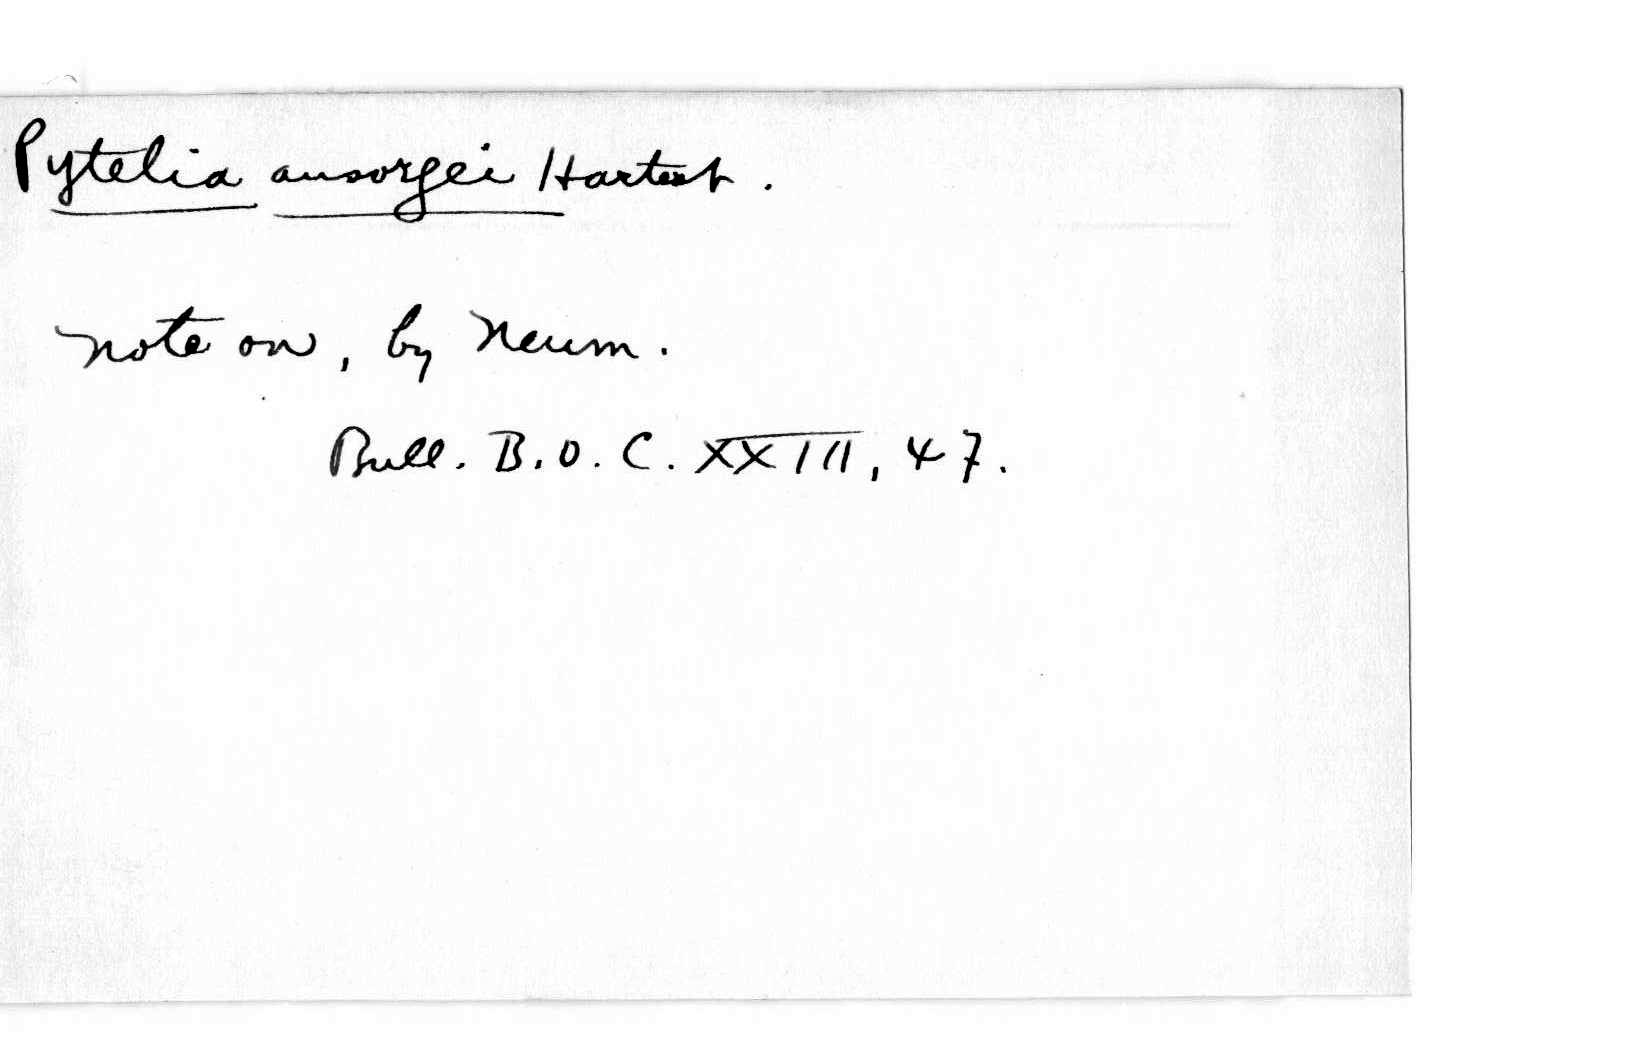 Pytelia ansorgei Hartert.
note on, by Neum.
Bull. B.O.C. XXIII, 47.